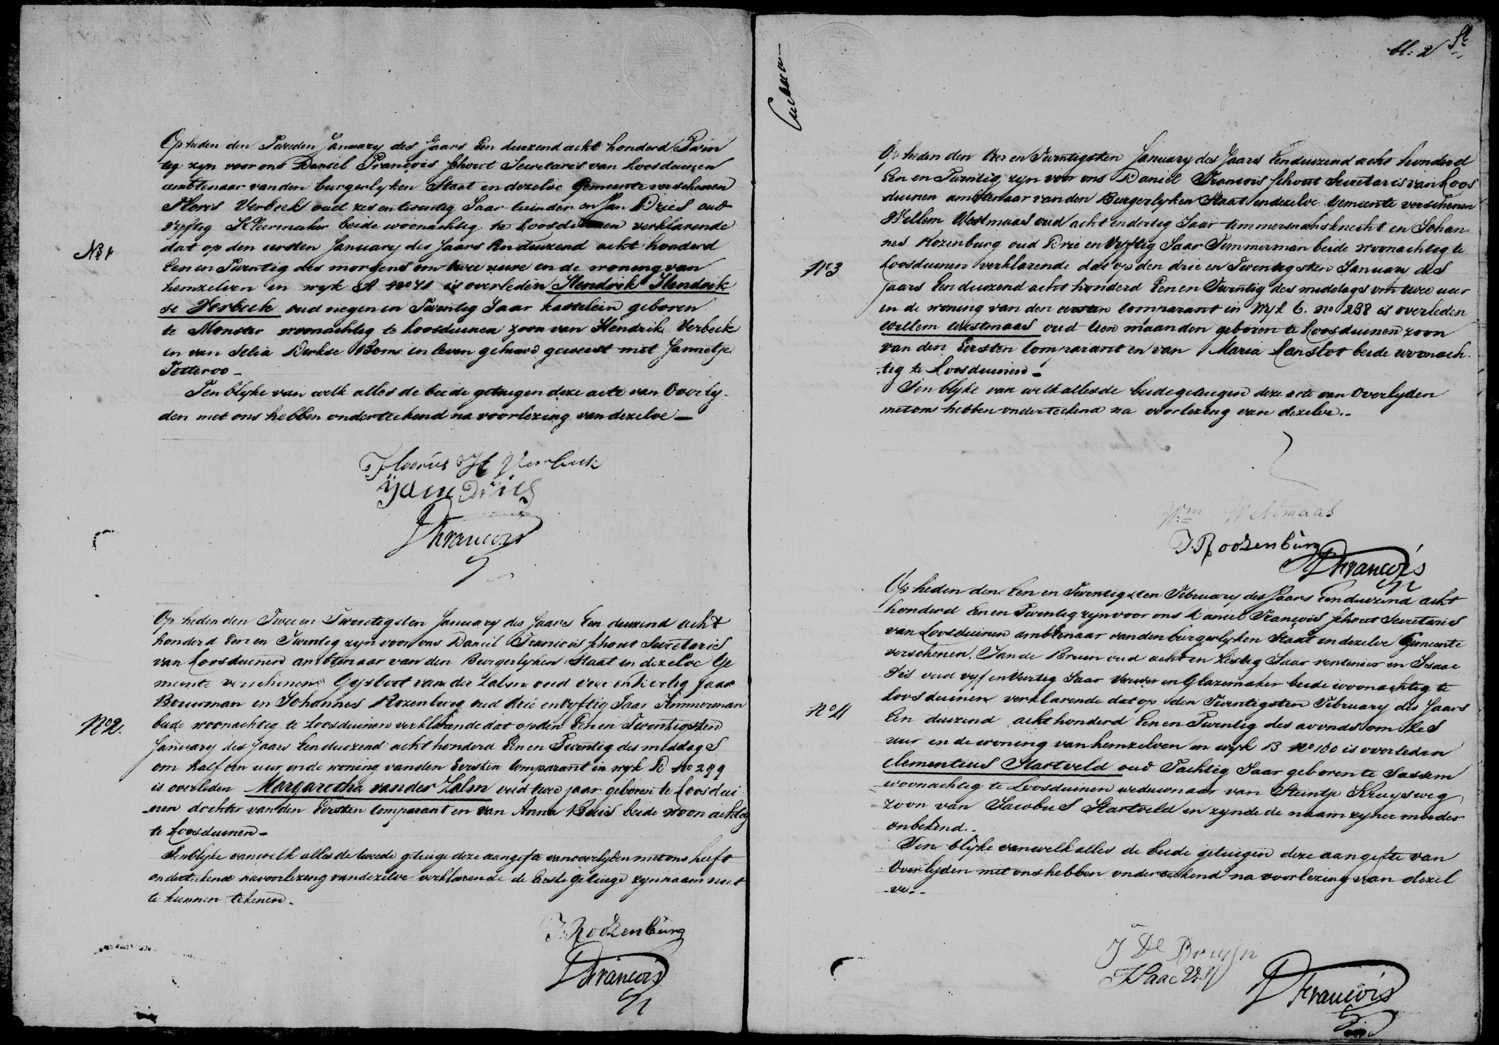 Op heden den Tweeden January des Jaars Een duuzend acht honderd Twin
tig zyn voor ons Daniel François Schout Secretaris van Loosduinen
ambtenaar van den burgerlyken Staat in dezelve Gemeente verschenen
Floris Verbeek oud zes en twintig Jaar tuinder en Jan Dries oud
vyftig Kleermaker beide woonachtig te Loosduinen verklarende
dat op den eersten January des Jaars Een duuzend acht honderd
No 1
Een en Twentig des morgens om twee uure en de woning van
hemzelven in wyk A No 71 is overleden Hendrik Hendrik
se Verbeek oud negen en Twentig Jaar kastelein geboren
te Monster woonachtig te Loosduinen zoon van Hendrik Verbeek
en van Selia Dirkse Boms in leven gehuwd geweest met Jannetje
Totteroo
Ten blyke van welk alles de beide getuigen deze acte van Overly
den met ons hebben onderteekend na voorlezing van dezelve
Floorus H Verbeek
Jan Dries
D François
Op heden den Twee en Twentigsten January des Jaars Een duuzend acht
honderd Een en Twentig zyn voor ons Daniel François Schout Secretaris
van Loosduinen ambtenaar van den Burgerlyken Staat in dezelve Ge
meente verschenen Gysbert van der Zalm oud vier en Jaar
Bouwman en Johannes Rozenburg oud drie en vyftig Jaar Timmerman
No 2.
beide woonachtig te Loosduinen verklarende dat op den Een en Twentigsten
January des Jaars Een duuzend acht honderd Een en Twentig des middags
om half een uur in de woning van den Eersten Comparant in wyk D No 299
is overleden Margaretha van der Zalm oud twee jaar geboren te Loosdui
nen dochter van den Eersten Comparant en van Anna Buis beide woonachtig
te Loosduinen
Ten blyke van welk alles de tweede getuige deze aangifte van overlyden met ons heeft
onderteekend na voorlezing van dezelve verklarende de Eerste Getuige zyn naam niet
te kunnen tekenen
J. Roozenburg
D François
bl: 2
Op heden den Vier en Twentigsten January des Jaars Een duuzend acht honderd
Een en Twentig zyn voor ons Daniel François Schout Secretaris van Loos
duinen ambtenaar van den Burgerlyken Staat in dezelve Gemeente verschenen
Willem Westmaas oud acht en dertig Jaar timmermansknecht en Johan
nes Rozenburg oud Drie en Vyftig Jaar Timmerman beide woonachtig te
No 3
Loosduinen verklarende dat op den drie en Twentigsten January des
Jaars Een duuzend acht honderd Een en Twentig des middags om twee uur
in de woning van den eersten Comparant in Wyk C. no 288 is overleden
Willem Westmaas oud tien maanden geboren te Loosduinen zoon
van den Eersten Comparant en van Maria Lanslot beide woonach
tig te Loosduinen
Ten blyke van welk alles de beide getuigen deze acte van Overlyden
met ons hebben onderteekend na voorlezing van dezelve
Wm Westmaas
J. Roozenburg
D François
Op heden den Een en Twentigsten February des Jaars Een duuzend acht
honderd Een en Twentig zyn voor ons Daniel François Schout Secretaris
van Loosduinen ambtenaar van den burgerlyken Staat in dezelve Gemeente
verschenen Jan de Bruin oud acht en zestig Jaar rentenier en Isaac
oud vyf en Veertig Jaar Verwer en Glazemaker beide woonachtig te
No 4
Loosduinen verklarende dat op den Twentigsten February des Jaars
Een duuzend acht honderd Een en Twentig des avonds om zes
uur in de woning van hemzelven in wyk B No 100 is overleden
Clementius Hartveld oud Tachtig Jaar geboren te Sassem
woonachtig te Loosduinen weduwnaar van Steintje Kruysweg
zoon van Jacobus Hartveld en zynde de naam zyner moeder
onbekend
Ten blyke van welk alles de beide getuigen deze aangifte van
Overlyden met ons hebben onderteekend na voorlezing van dezel
ve
J De Bruyn
Isaac
D François